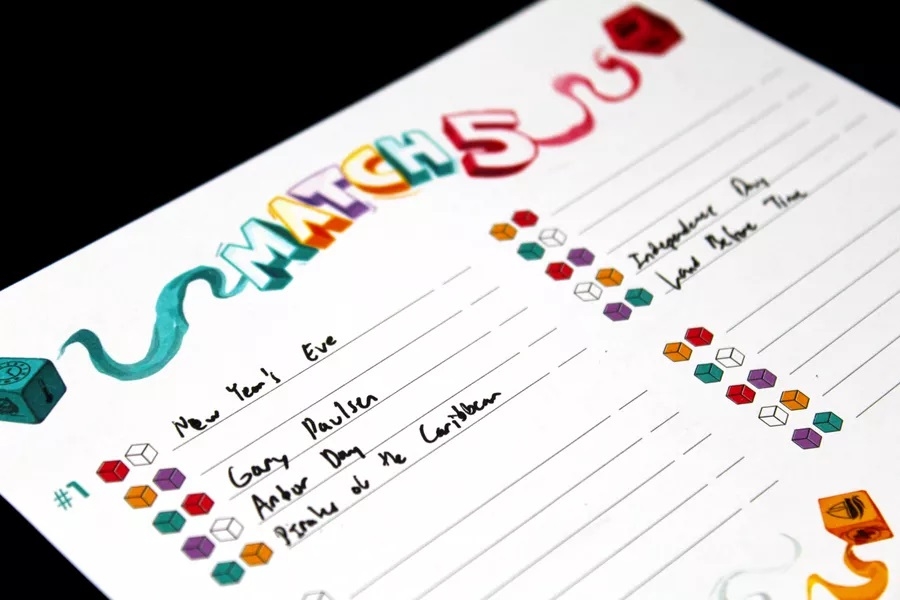 MATCH 5
#1
New Year's Eve
Gary Paulsen
Arbor Day
Pirates of the Caribbean
Independence Day
Land Before Time